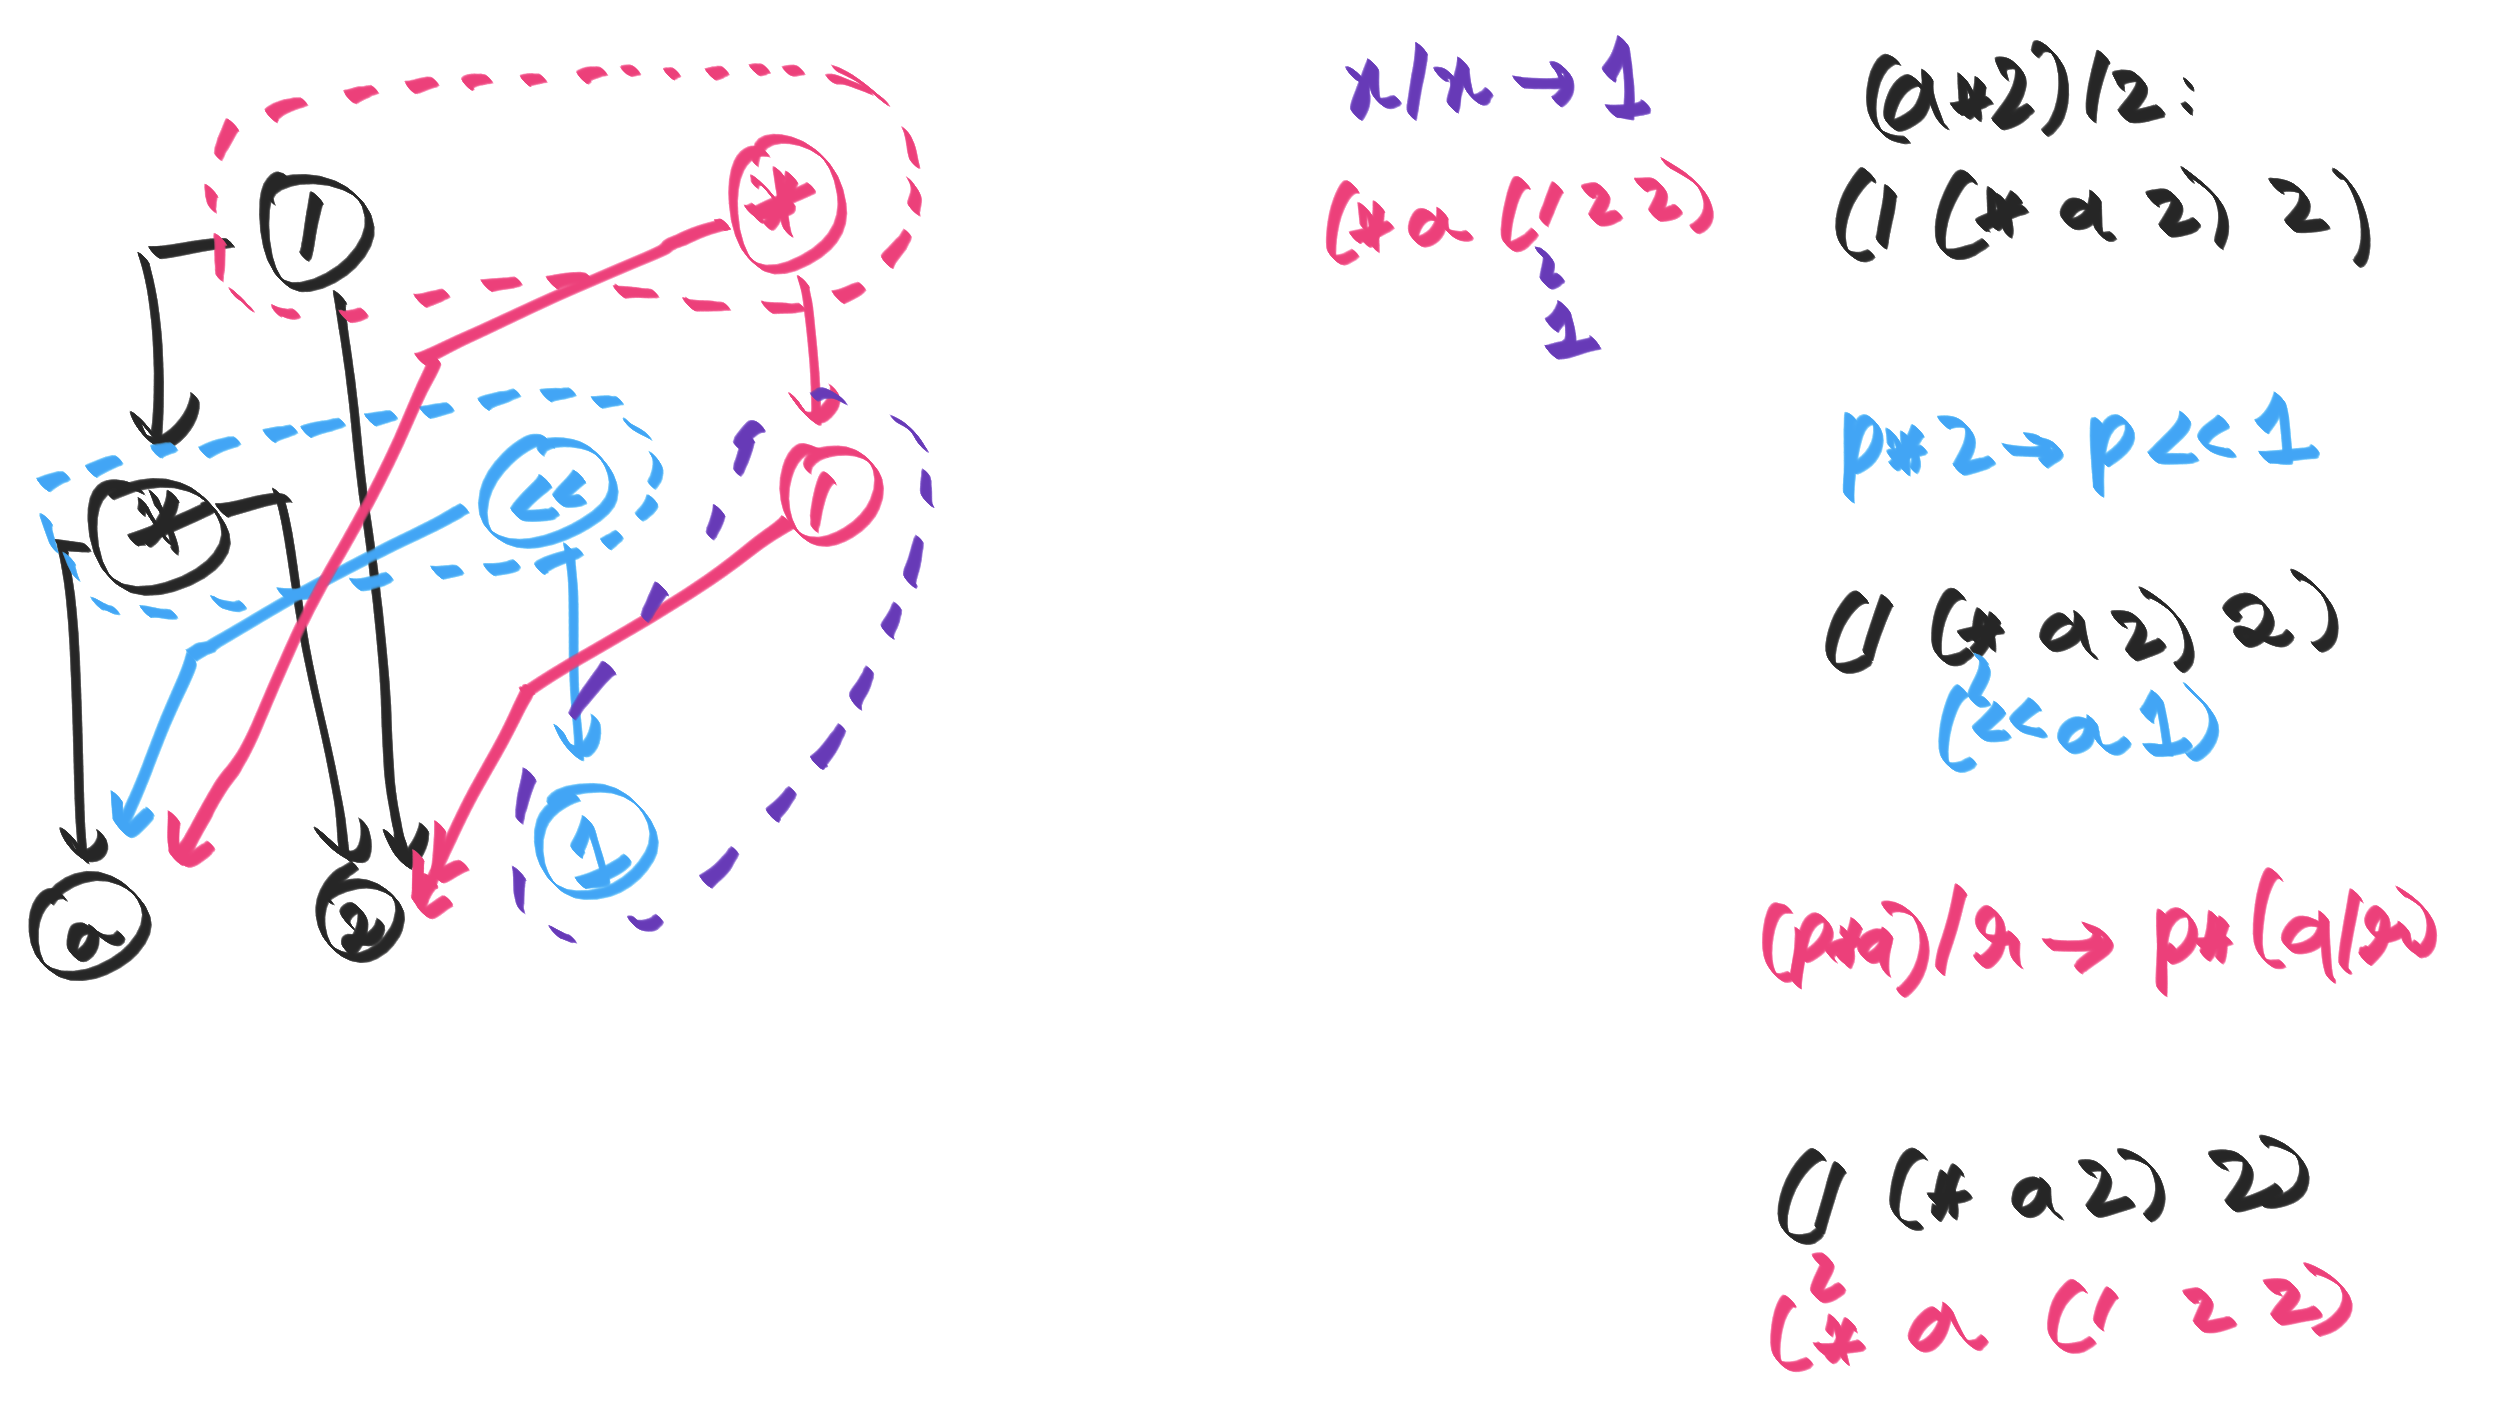 /
*
*
<<
/
a
2
1
x/x → 1
(* a (/ 2 2)
~
1
(a*2)/2:
(/ (* a 2) 2)
p*2 → p<<1
(/ (* a 2) 2)
~
(<< a 1)
(p*q)/r → p*(q/r)
(/ (* a 2) 2)
~
(* a (/ 2 2)